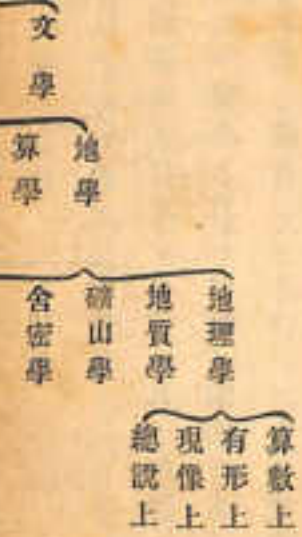 文學
地學
算學
地理學
地質學
礦山學
舍密學
算數上
有形上
現像上
總說上